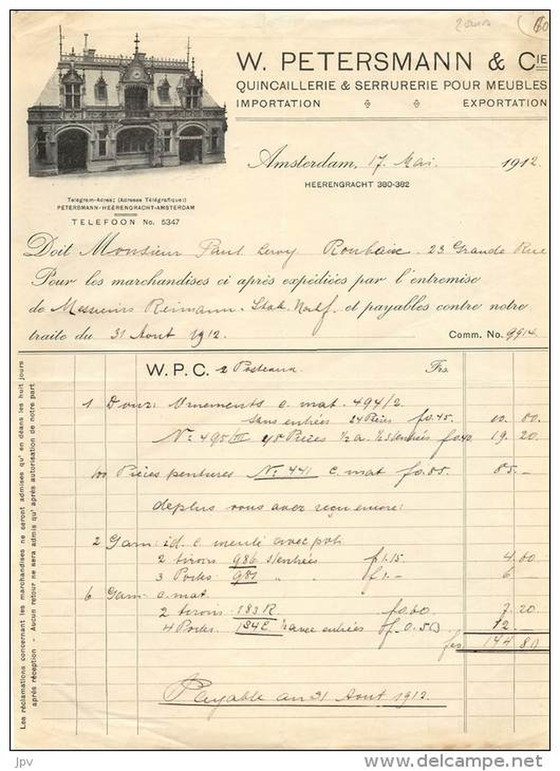 W. PETERSMANN & CIE
QUINCAILLERIE & SERRURERIE POUR MEUBLES
IMPORTATION EXPORTATION
Amsterdam, 17 Mai 1912
HEERENGRACHT 380-382
Telegram-Adres; (Adresse Télégrafique:)
PETERSMANN-HEERENGRACHT-AMSTERDAM
TELEFOON No. 5347
Doit Monsieur Paul Leroy Roubaix. 23 Grande Rue
Pour les marchandises ci après expédiées par l'entremise
de Messieurs Reimann. et payables contre notre
traite du 31 Aout 1912. Comm. No. 9914
W. P. C. 2 Posteaux Frs.
1 Douz: Ornements c. mat. 494/2
sans entrées 24 Pièces f0.45. 10. 80
No 495/III 48 Pièces f0.40. 19. 20
100 Pièces pentures No 441 c. mat f0.85 85.-
de plus vous avez reçu encore:
2 Garn: id. c.
2 tiroirs 986 s/entrées f1.15. 4.60
3 Portes 981 " " f1.- 6 -
6 Garn: c. mat
2 tiroirs 183 R f0.60 7.20
4 Portes 134 E entrées f0.50 12.-
frs 144.80
Payable au 31 Aout 1912.
Les réclamations concernant les marchandises ne seront admises qu' en déans les huit jours
après réception - Aucun retour ne sera admis qu' après autorisation de notre part.
jpv
www.delcampe.net